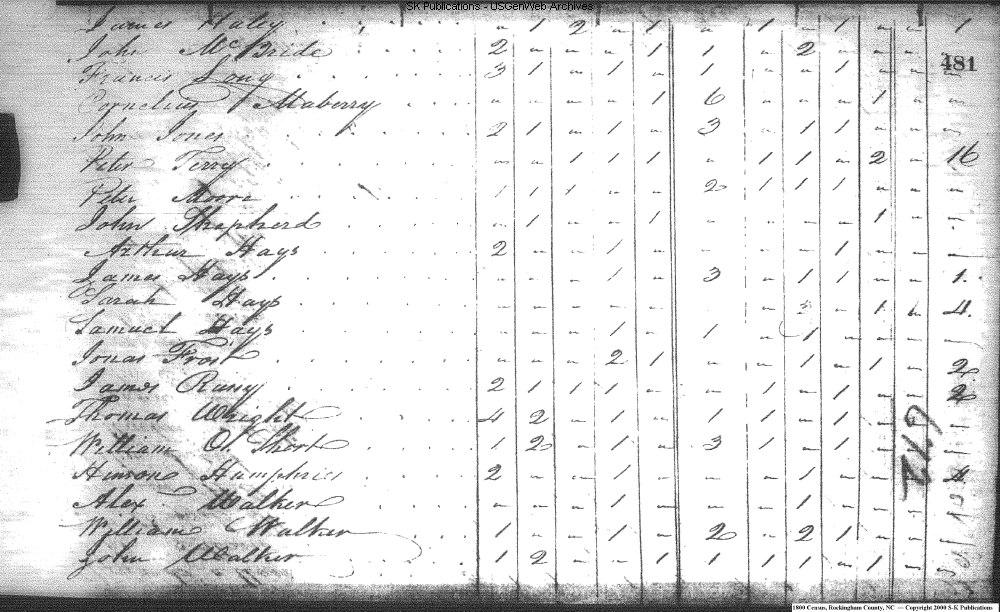 SK Publications - USGenWeb Archives
James Haley - 1 2 - 1 - 1 - 1 - - 1
John McBride 2 - - - 1 1 - 2 - - - -
481
Francis Long 3 1 - 1 - 1 - - 1 - - -
Cornelius Maberry - - - - 1 6 - - - 1 - -
John Jones 2 1 - 1 - 3 - 1 1 - - -
Peter Terry - - 1 1 1 - 1 1 - 2 - 16
Peter Moore 1 1 1 - - 2 1 1 1 - - -
John Shepherd - 1 - - 1 - - - - 1 - -
Arthur Hays 2 - - 1 - - - - 1 - - -
James Hays - - - 1 - 3 - 1 1 - - 1
Sarah Hays - - - - - - 3 - 1 - 4
Samuel Hays - - - 1 - 1 - 1 - - -
Jonas Frost - - - 2 1 - - 1 - 1 - 2
James Rany 2 1 1 1 - - 1 - 1 - - 2
Thomas Wright 4 2 - 1 - 1 1 1 1 - -
William Short 1 2 - 1 - 3 1 - 1 - -
672
Hinson Humphries 2 - - 1 - - - - 1 - - 4
Alex Walker - - - 1 - - - 1 - - -
William Walker 1 - - 1 - 2 - 2 1 - -
John Walker 1 2 - - 1 1 1 1 1 1 -
1800 Census, Rockingham County, NC — Copyright 2000 S-K Publications